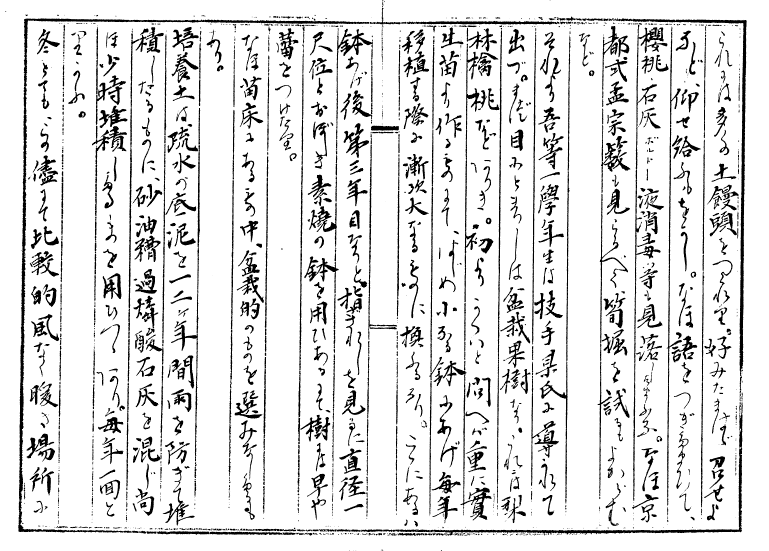 これは多の土饅頭をつくれり。好みたまはゞ召せよ
など仰せ給ふもをかし。なほ語をつぎたまひて、
櫻桃 石灰ボルドー液消毒等も見落したまふな。なほ京
都式孟宗籔も見らるべく筍堀を試もよからむ
など。
それより吾等一學年生は技手某氏に導かれて
出づ。まづ目にとまりしは盆栽果樹なり。これは梨
林檎 桃などなりき。初よりかくいと問へば重に實
生苗より作るものにて、はじめ小なる鉢にあげ毎年
移植する際に漸次大なるものに換ふるなり。こゝにあるは
鉢あげ後第三年目なりと。指されしを見るに直径一
尺位とおぼしき素燒の鉢を用ひあるにて、樹は早や
蕾をつけたり。
なほ苗床にあるものゝ中、盆栽的のものを選みたる
あり。
培養土は疏水の底泥を一二ヶ年間雨を防ぎて堆
積したるものに、砂 油糟 過燐酸石灰を混じ尚
ほ少時堆積したるものを用ひつゝあり。毎年一回と
りかふ。
冬とてもこの儘にて比較的風なく暖き場所に